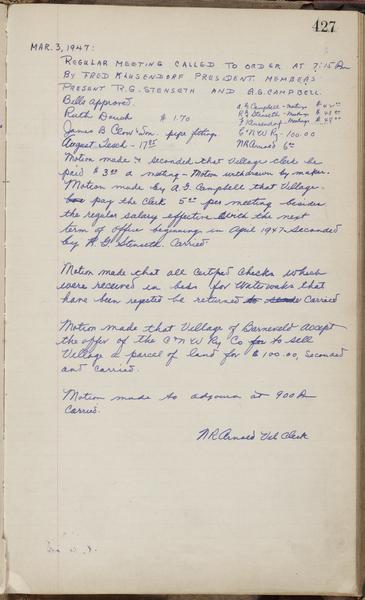 427
MAR. 3, 1947:
REGULAR MEETING CALLED TO ORDER AT 7:15 P.M
BY FRED KLUSENDORF PRESIDENT. MEMBERS
PRESENT R.G. STENSETH AND A.G. CAMPBELL.
Bills approved.
Ruth Doush $ 1.70
James B Clow & Son. pipe fitting
August Tesch - 17.85
A G Campbell - Meetings $ 42.00
R G Stenseth - Meetings $ 48.00
F. Klusendorf - Meetings $ 48.00
C & N W Ry - 100.00
N R Arnold 6.00
Motion made & seconded that Village clerk be
paid $ 3.00 a meeting - Motion withdrawn by maker.
Motion made by A G Campbell that Village
pay the Clerk 5.00 per meeting besides
the regular salary effective with the next
term of office beginning in April 1947. Seconded
by R. G. Stenseth. Carried
Motion made that all Certified Checks which
were received in bids for Waterworks that
have been rejected be returned Carried
Motion made that Village of Barneveld accept
the offer of the C & N W Ry Co to sell
Village a parcel of land for $ 100.00, Seconded
and carried.
Motion made to adjourn at 9 00 P.M
Carried.
N R Arnold Vil Clerk